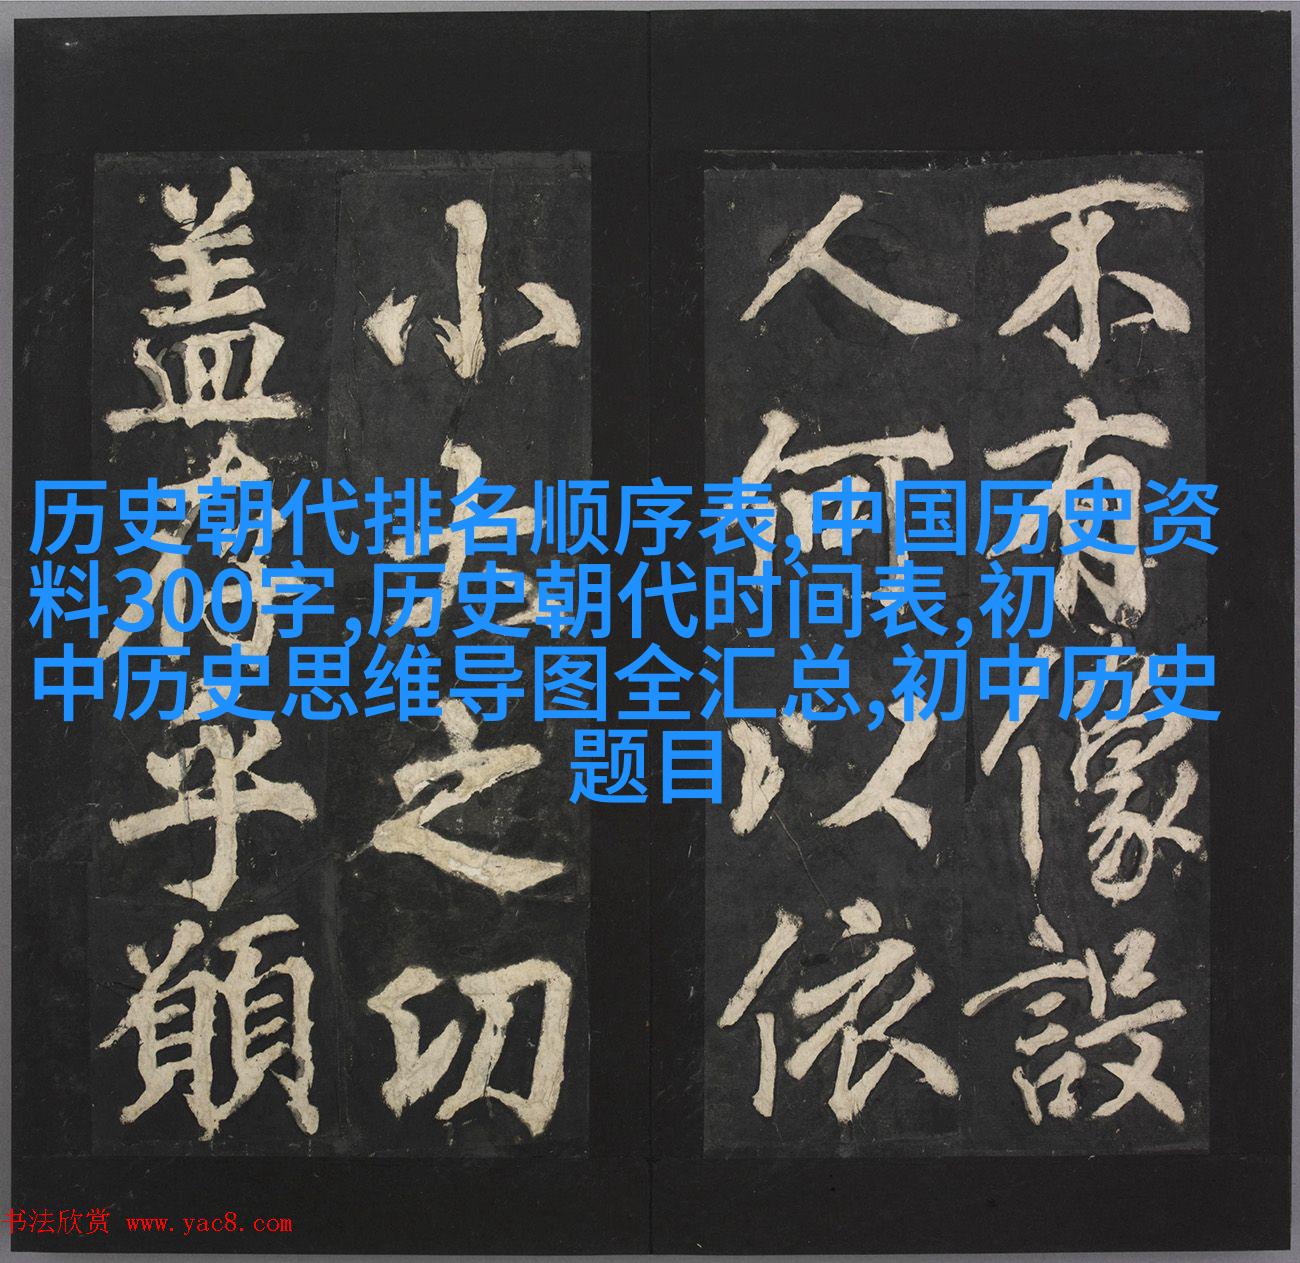 历史朝代排名顺序表,中国历史资
料300字,历史朝代时间表,初
中历史思维导图全汇总,初中历史
题目
不有像設
人何以依
小之切
盖乎願
书法欣赏 www.yac8.com